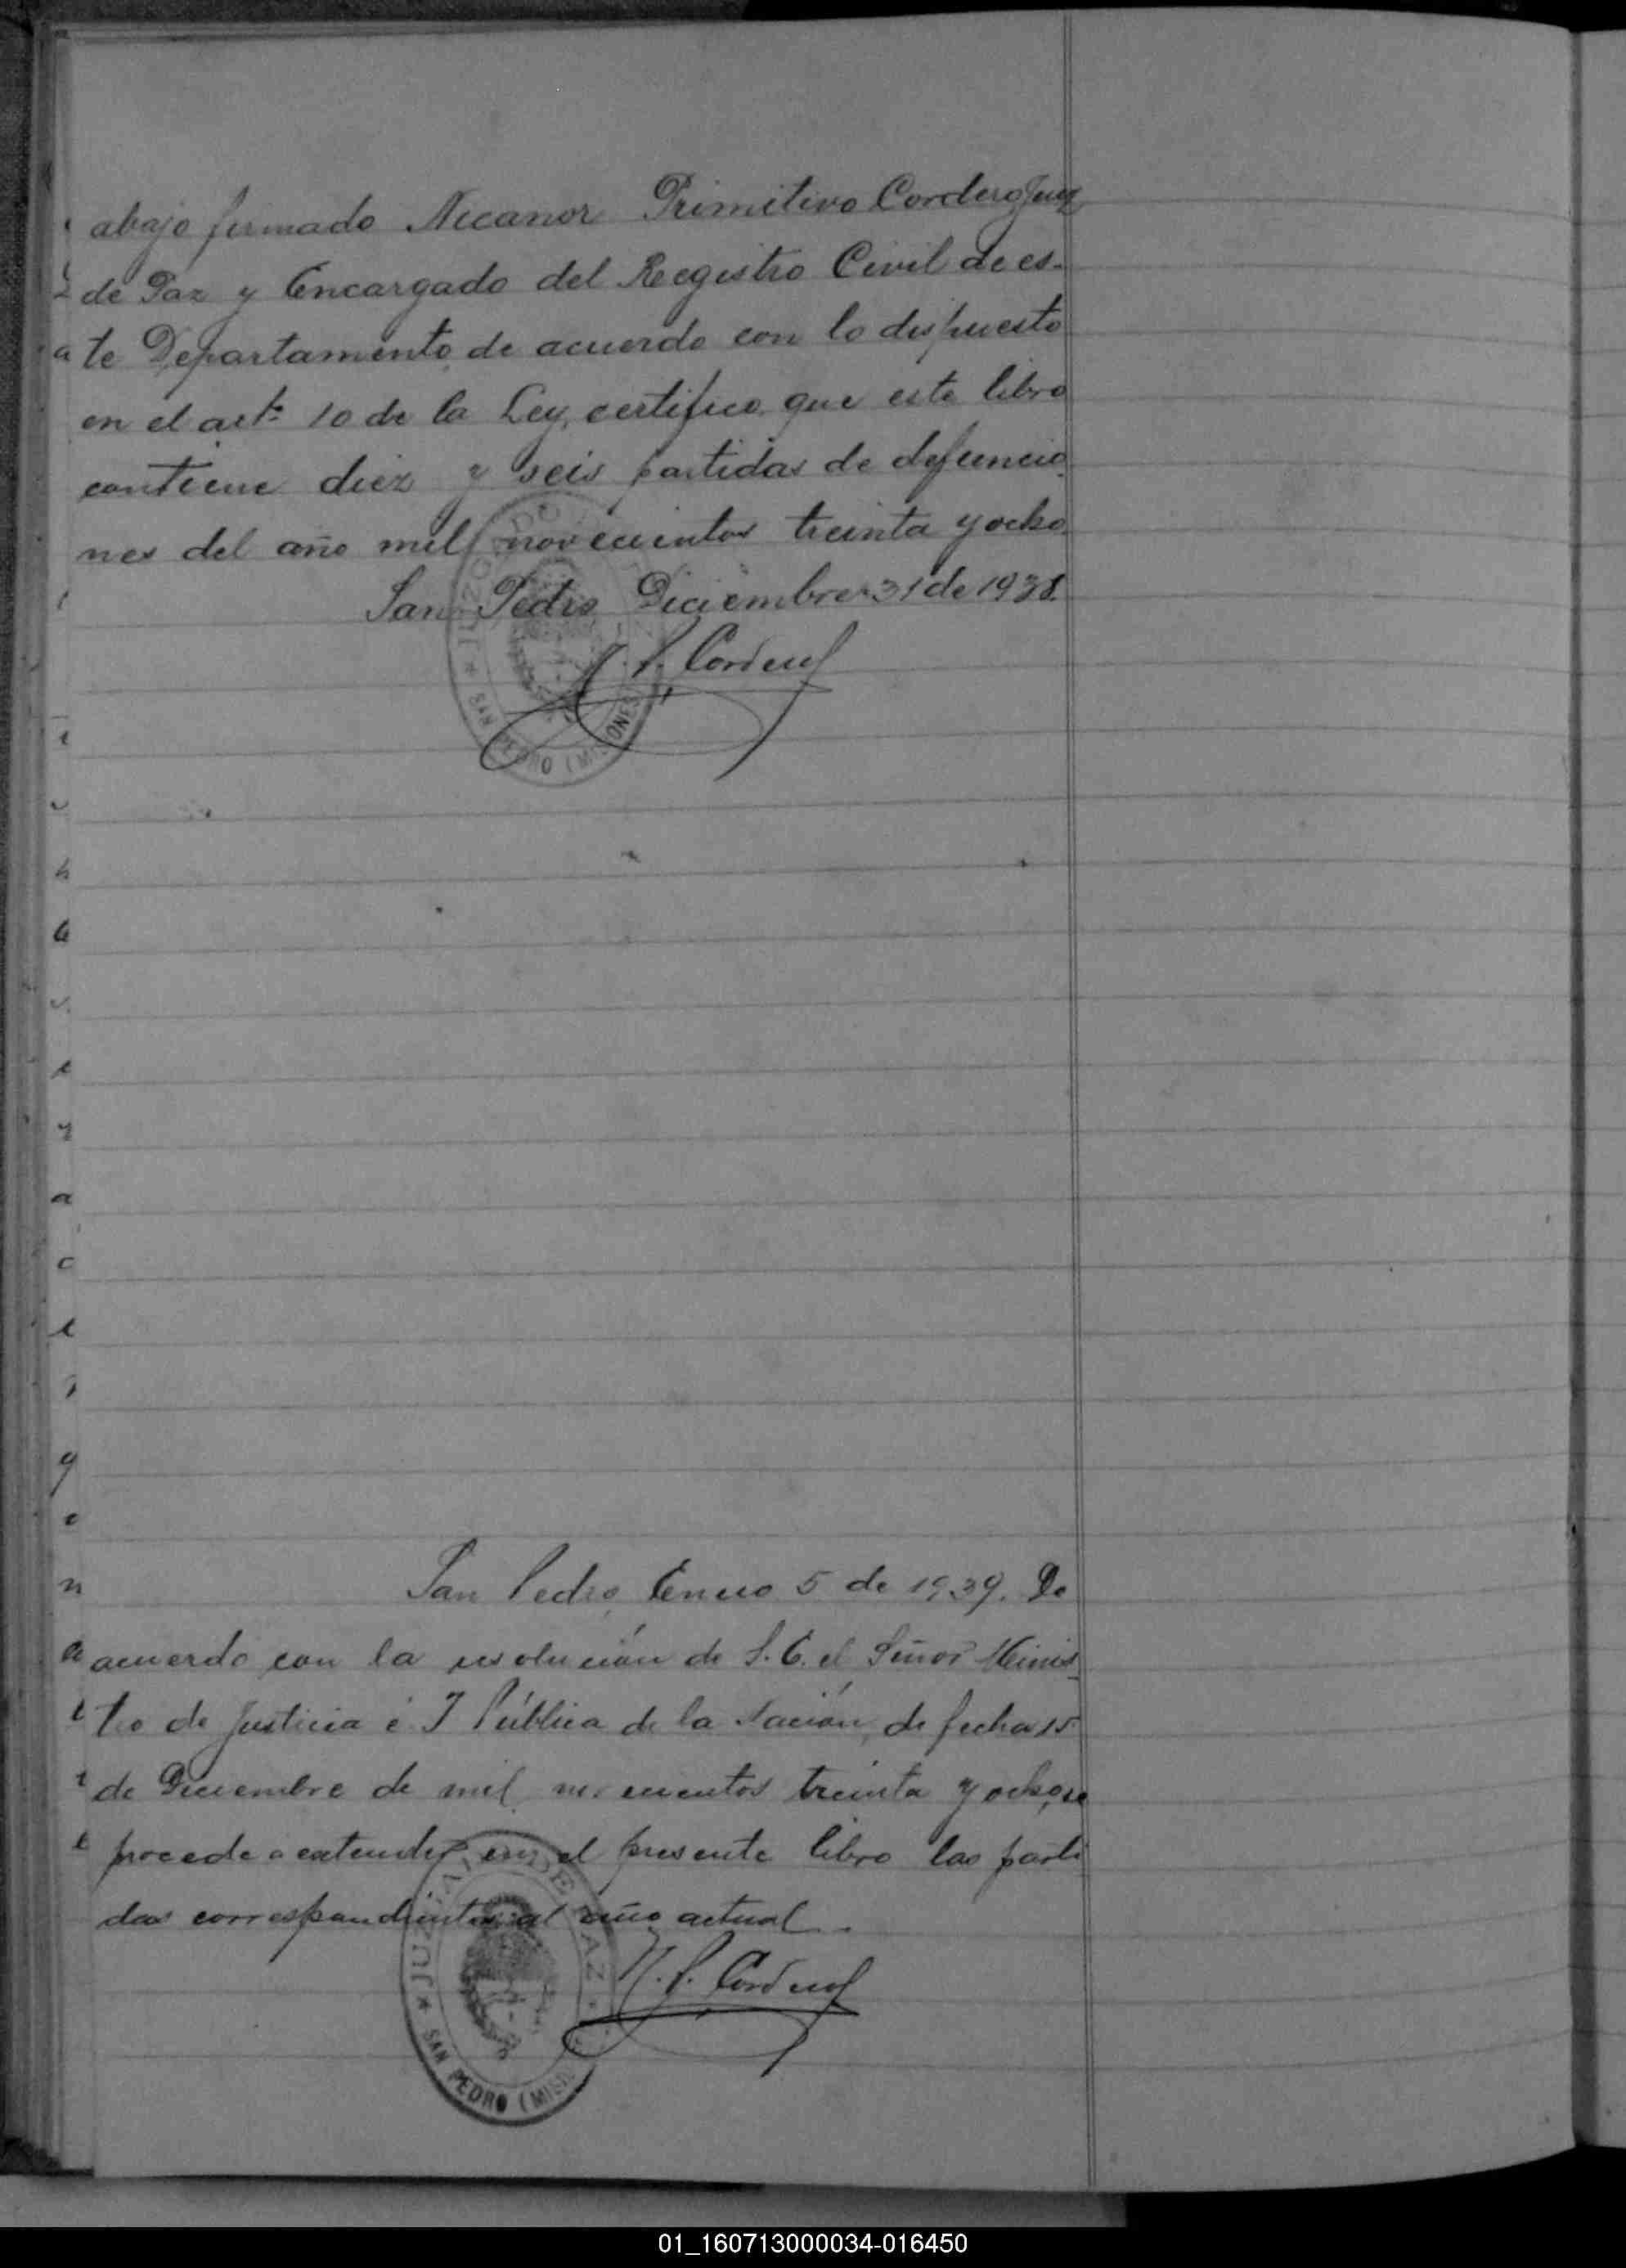 abajo firmado Nicanor Primitivo Cordero Juez
de Paz y Encargado del Registro Civil de es-
te Departamento, de acuerdo con lo dispuesto
en el artº 10 de la Ley, certifico que este libro
contiene diez y seis partidas de defuncio
nes del año mil novecientos treinta y ocho.
San Pedro Diciembre 31 de 1938.
N. P. Cordero
JUZGADO
SAN PEDRO (MISIONES
San Pedro, Enero 5 de 1939. De
acuerdo con la resolución de S. E. el Señor Minis
tro de Justicia é I Pública de la Nación, de fecha 15
de Diciembre de mil novecientos treinta y ocho, se
procede a extender en el presente libro las parti
das correspondientes al año actual.
N. P. Cordero
JUZGADO DE PAZ
SAN PEDRO (MISI
01_160713000034-016450